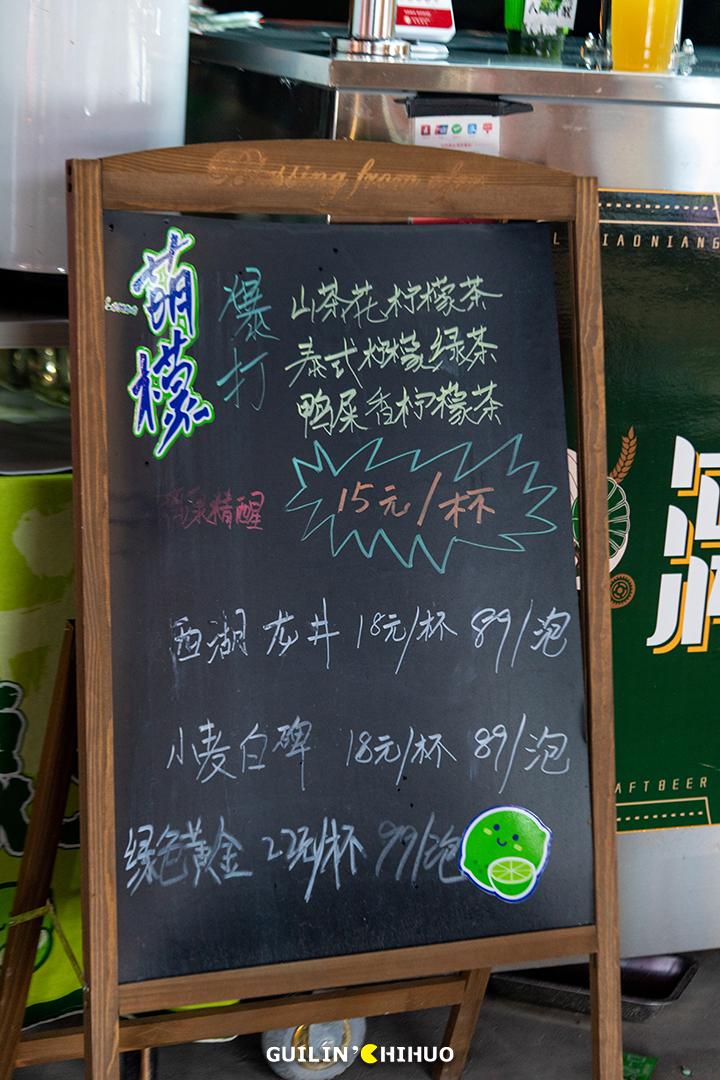 Blessing from
萌檬
爆打
山茶花柠檬茶
泰式柠檬绿茶
鸭屎香柠檬茶
15元/杯
西湖龙井 18元/杯 89/泡
小麦白碑 18元/杯 89/泡
绿色黄金 22元/杯 99/泡
IAONIANG
AFTBEER
GUILIN'CHIHUO